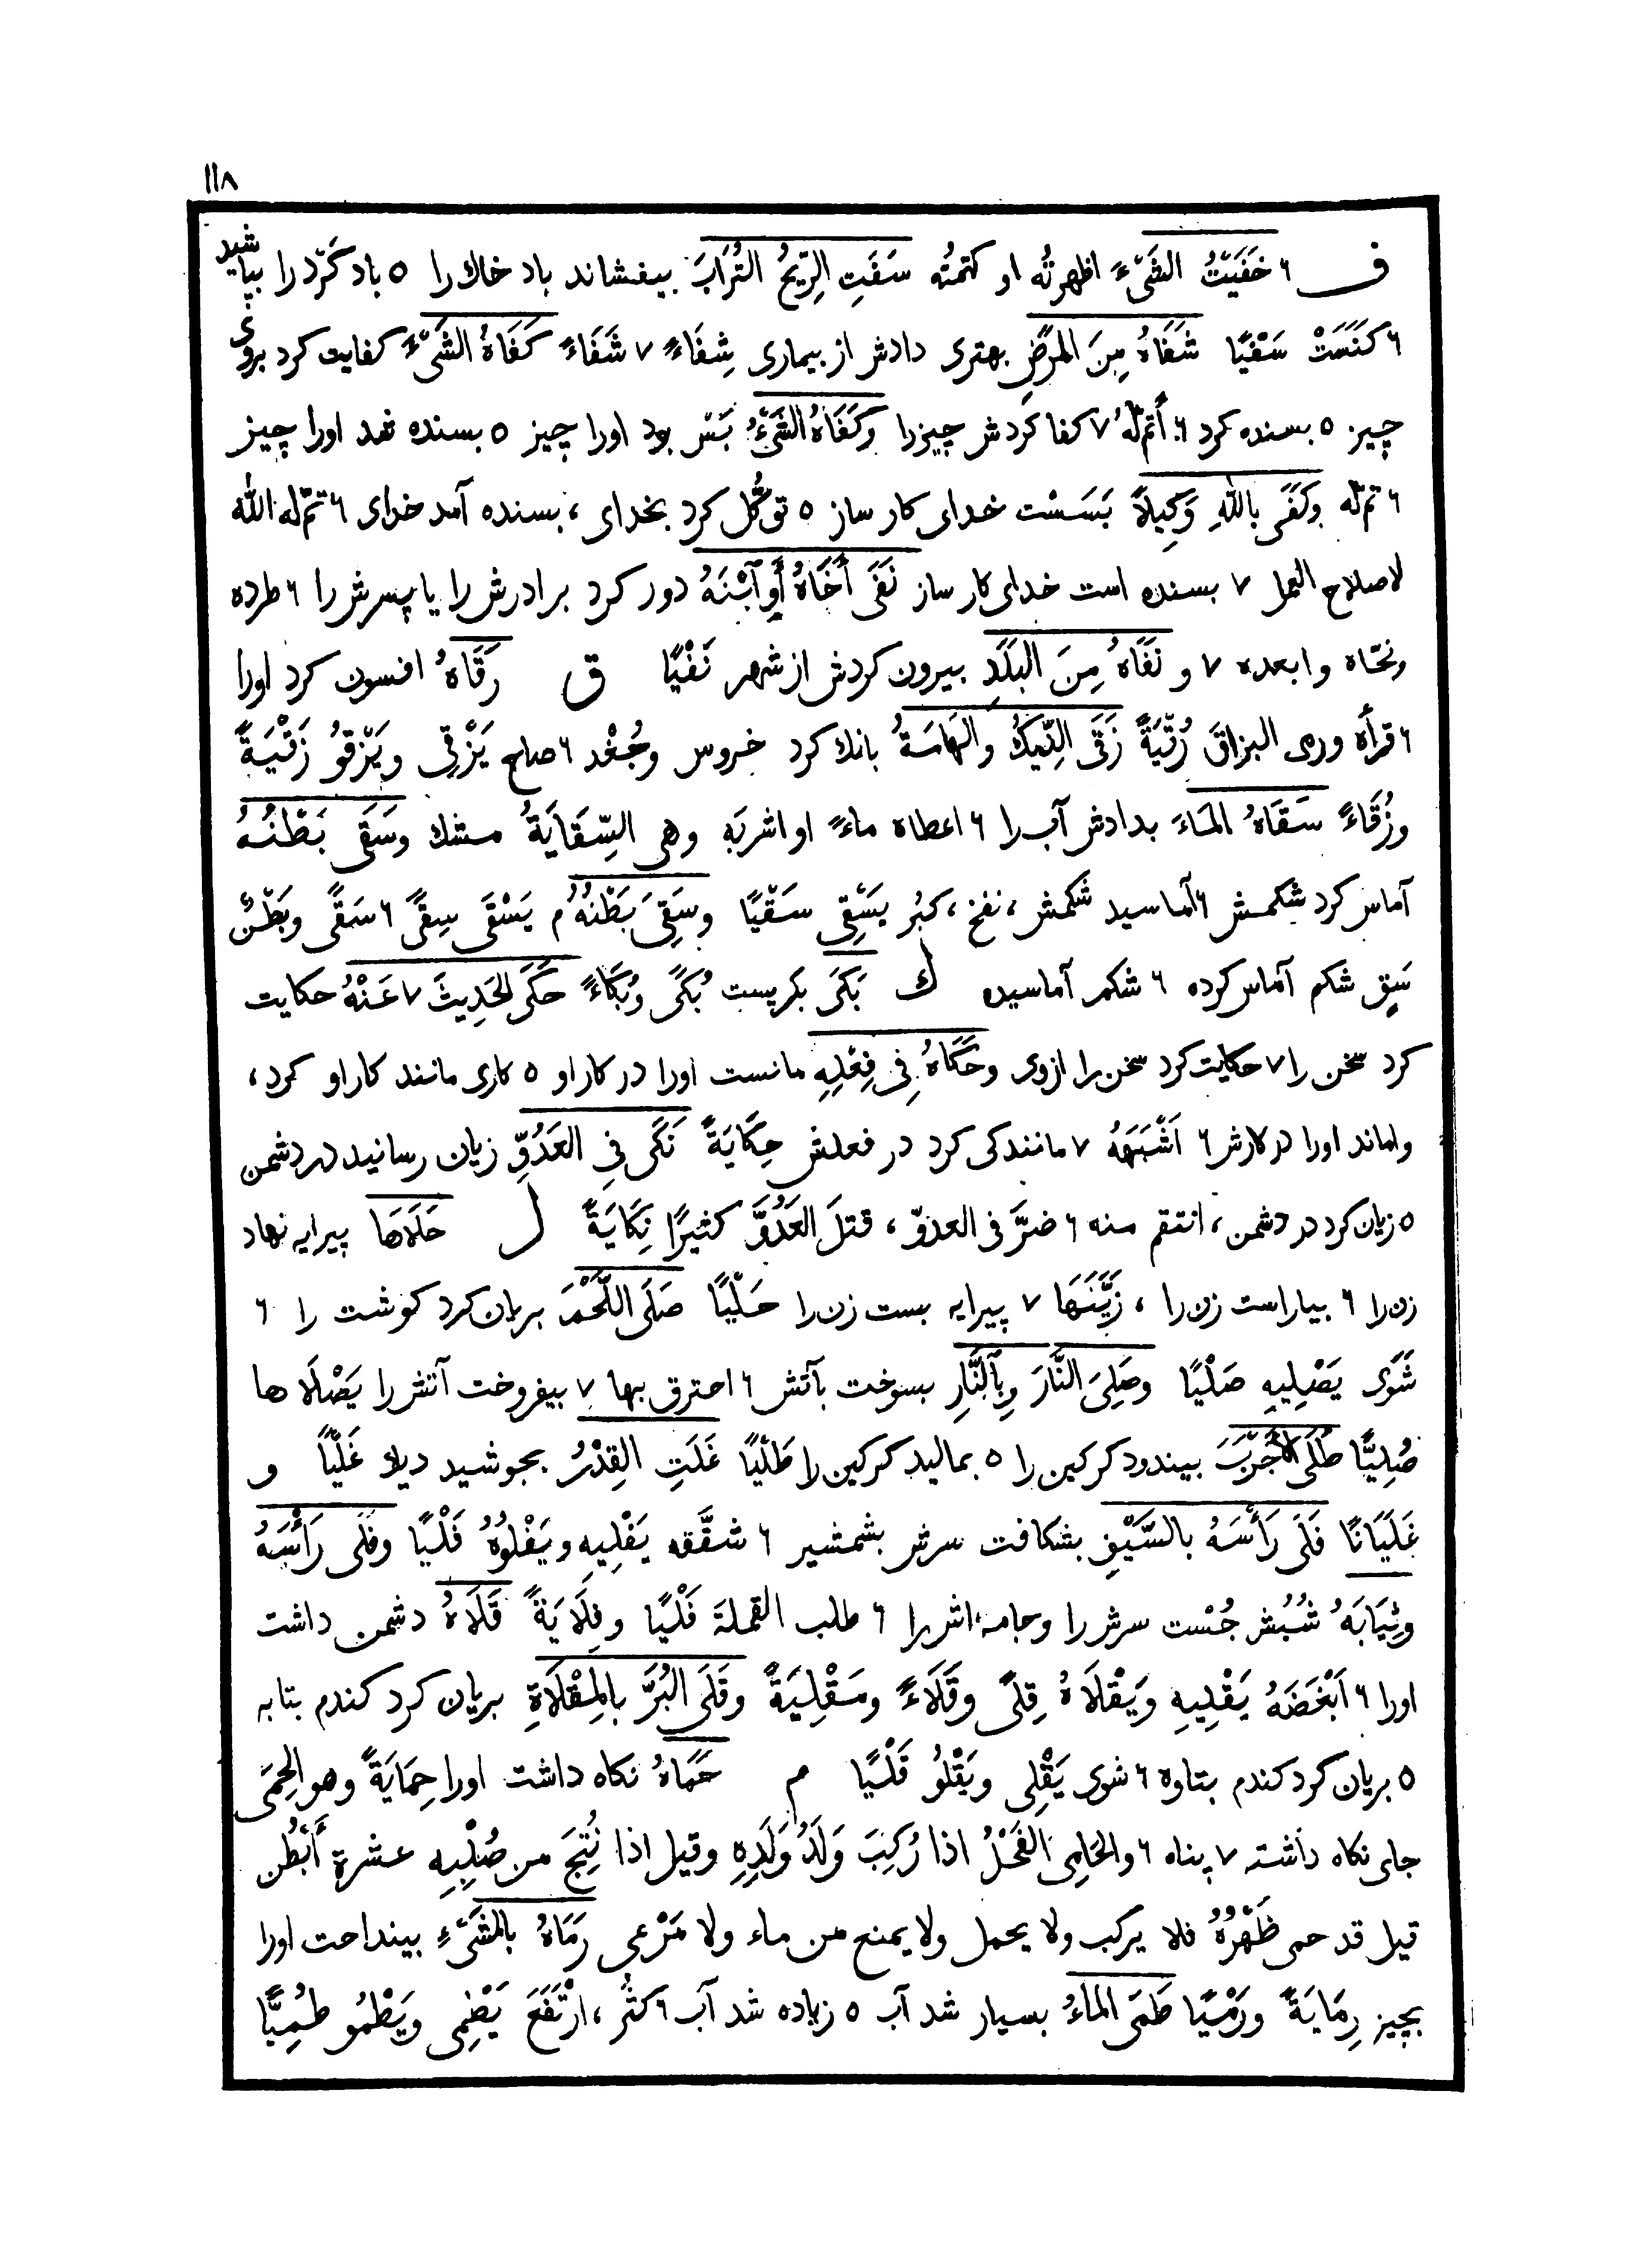 ١١٨
ف ٦ خَفَيْتُ الشَّىْءَ اظهرتُه او كتمتُه سَفَتِ الرِّيحُ التُّرَابَ بيفشاند باد خاك را ٥ باد كَرْد را بپاشيد
٦ كَنَسَتْ سَفْيًا شَفَاهُ مِنَ المَرَضِ بهترى دادش از بيمارى شِفَاءً ٧ شَفَاءً كَفَاهُ الشَّىْءَ كفايت كرد بروى
چيز ٥ بسنده كرد ٦ أَتمّ لَهُ ٧ كفا كردش چيزرا وكَفَاهُ الشَّىْءُ بَسْ بود اورا چيز ٥ بسنده شد اورا چيز
٦ تمّ له وكَفَى بِاللّٰهِ وَكِيلاً بَسَسْت خداى كار ساز ٥ توكُّل كرد بخداى ، بسنده آمد خداى ٦ تمّ له الله
لاصلاح العمل ٧ بسنده است خداى كار ساز نَفَى أَخَاهُ أَوِ ٱبْنَهُ دور كرد برادرش را يا پسرش را ٦ طرده
ونحّاه وابعده ٧ و نَفَاهُ مِنَ البَلَدِ بيرون كردش از شهر نَفْيًا ق رَقَاهُ افسون كرد اورا
٦ قرأه ورمى البزاق رُقْيَةً زَقَى الدِّيكُ والهَامَةُ بانك كرد خروس وجُغْد ٦ صاح يَزْقِى ويَزْقُو زَقْيَةً
وزُقَاءً سَقَاهُ المَاءَ بدادش آب را ٦ اعطاه ماءً او اشربَه وهى السِّقَايَةُ مشك وسَقَى بَطْنُهُ
آماس كرد شكمش ٦ آماسيد شكمش ، نفخ ، كبُر يَسْقِى سَقْيًا وسَقِىَ بَطْنُهُ م يَسْقَى سِقًى ٦ سَقًى وبَطْنٌ
سَقٍ شكم آماس كرده ٦ شكم آماسيده ك بَكَى بكريست بُكًى وبُكَاءً حَكَى الحَدِيثَ ٧ عَنْهُ حكايت
كرد سخن را ٧ حكايت كرد سخن را ازوى وحَكَاهُ فِى فِعْلِهِ مانست اورا در كار او ٥ كارى مانند كار او كرد ،
واماند اورا در كارش ٦ اَشْبَهَهُ ٧ مانندكى كرد در فعلش حِكَايَةً نَكَى فِى العَدُوِّ زيان رسانيد در دشمن
٥ زيان كرد در دشمن ، انتقم منه ٦ ضرَّ فى العدوّ ، قتلَ العَدُوَّ كثيرًا نِكَايَةً ل حَلَاهَا پيرايه نهاد
زن را ٦ بياراست زن را ، زَيَّنَهَا ٧ پيرايه بست زن را حَلْيًا صَلَى اللَّحْمَ بريان كرد كوشت را ٦
شَوَى يَصْلِيهِ صَلْيًا وصَلِىَ النَّارَ وبِٱلنَّارِ بسوخت بآتش ٦ احترق بها ٧ بيفروخت آتش را يَصْلَاها
صُلِيًّا طَلَى الأَجْرَبَ بيندود كركين را ٥ بماليد كركين را طَلْيًا غَلَتِ القِدْرُ بجوشيد ديك غَلْيًا و
غَلَيَانًا فَلَى رَأْسَهُ بالسَّيْفِ بشكافت سرش بشمشير ٦ شقَّقه يَفْلِيهِ ويَفْلُوهُ فَلْيًا وفَلَى رَأْسَهُ
وثِيَابَهُ شُبُش جُسْت سرش را وجامه‌اش را ٦ طلب القملة فَلْيًا وفِلَايَةً قَلَاهُ دشمن داشت
اورا ٦ اَبْغَضَهُ يَقْلِيهِ ويَقْلَاهُ قِلًى وقَلَاءً ومَقْلِيَةً وقَلَى البُرَّ بالمِقْلَاةِ بريان كرد كندم بتابه
٥ بريان كرد كندم بتاوه ٦ شوى يَقْلِى ويَقْلُو قَلْيًا م حَمَاهُ نكاه داشت اورا حِمَايَةً وهو الحِمَى
جاى نكاه داشته ٧ پناه ٦ والحَامِى الفَحْلُ اذا رُكِبَ وَلَدُ وَلَدِهِ وقيل اذا نُتِجَ من صُلْبِهِ عشرة أَبْطُن
قيل قد حمى ظَهْرُهُ فلا يركب ولا يحمل ولا يمنع من ماء ولا مَرْعى رَمَاهُ بالشَّىْءِ بينداحت اورا
بچيز رِمَايَةً ورَمْيًا طَمَى المَاءُ بسيار شد آب ٥ زياده شد آب ٦ كثر ، ارْتَفَعَ يَطْمِى ويَطْمُو طُمِيًّا